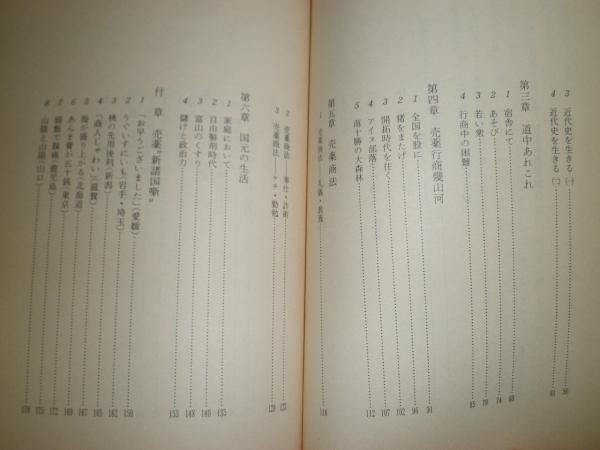 3 近代史を生きる(一) 56
4 近代史を生きる(二) 61
第三章 道中あれこれ
1 宿舎にて 69
2 あそび 74
3 若い衆 79
4 行商中の困難 85
第四章 売薬行商幾山河
1 全国を股に 91
2 猪をまたげ 96
3 開拓時代を往く 102
4 アイヌ部落 107
5 南十勝の大森林 112
第五章 売薬商法
1 売薬商法 116
2 売薬商法 奉仕・詐術 123
3 売薬商法 ケチ・勤勉 129
第六章 国元の生活
1 家庭において 135
2 自由製剤時代 140
3 富山のくすり 148
4 儲けと政治力 153
付章 売薬"新諸国噺"
1 「お早うございました」(愛媛) 159
2 うぐいすにしも(岩手・埼玉) 162
3 桃の先用後利(新潟) 165
4 「商人じゃわい」(滋賀) 167
5 海が盛り上がる(北海道) 169
6 あんま賃が五十銭(東京) 172
7 (鹿児島) 175
8 山猿と山陽(山口) 178